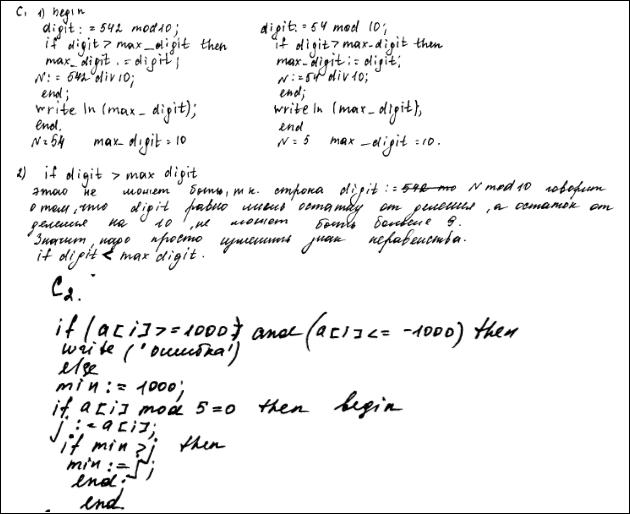 C1 1) begin
digit:=542 mod 10;
if digit > max_digit then
max_digit:=digit;
N:=542 div 10;
end;
write ln (max_digit);
end.
N=54 max_digit=10
digit:=54 mod 10;
if digit > max_digit then
max_digit:=digit;
N:=54 div 10;
end;
write ln (max_digit),
end
N=5 max_digit=10.
2) if digit > max digit
этого не может быть, т.к. строка digit:= N mod 10 говорит
о том, что digit равно лишь остатку от деления, а остаток от
деления на 10, не может быть больше 9.
Значит, надо просто изменить знак неравенства.
if digit < max digit.
C2.
if (a[i]>=1000) and (a[i]<= -1000) then
write ('ошибка')
else
min:=1000;
if a[i] mod 5=0 then begin
j:=a[i];
if min > j then
min:=j;
end;
end